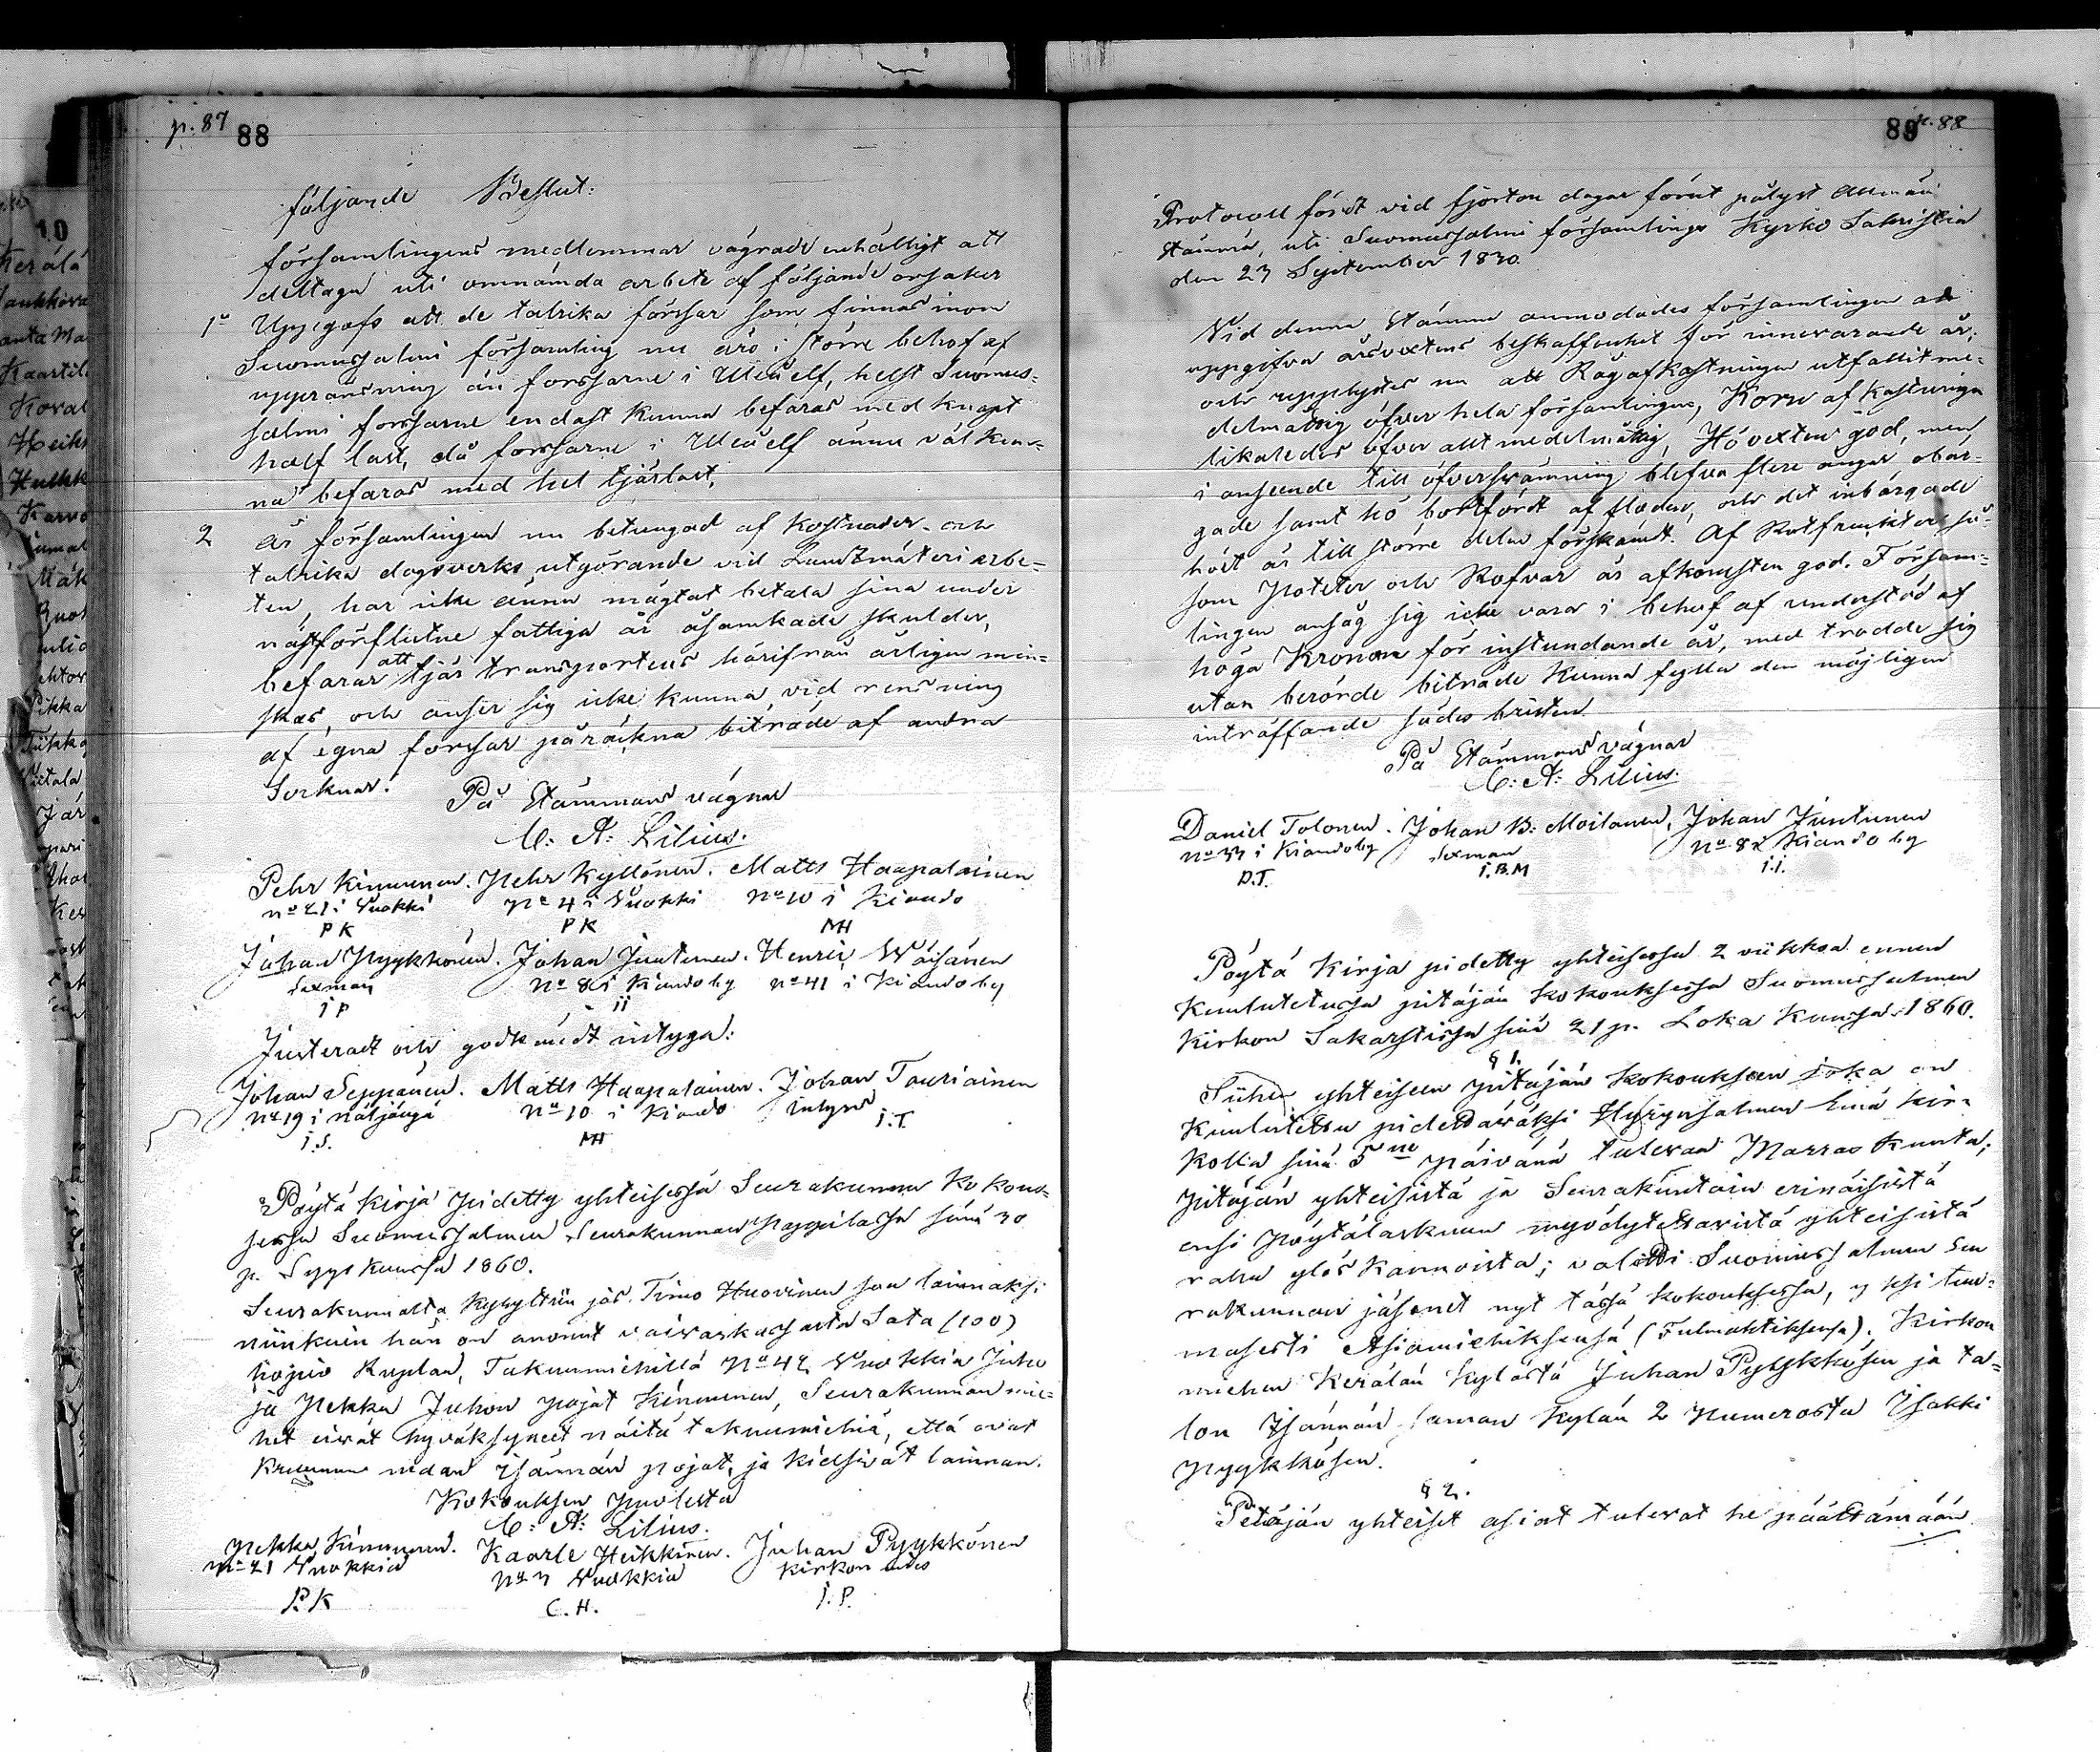 p. 87
88
följande Beslut:
församlingens medlemmar vägrade enhälligt att
deltaga uti omnämda arbete af följande orsaker
1o Uppgafs att de talrika forssar som finnas inom
Suomussalmi församling nu äro i större behof af
upprensning än forssarne i Uleå elf, helst Suomus=
salmi forssarne endast kunna befaras med knapt
half last, då forssarne i Uleå elf ännu väl kun=
na befaras med hel tjärlast,
2 är församlingen nu betungad af kostnader och
talrika dagsverks utgörande vid Landtmäteri arbe=
ten, har icke ännu mägtat betala sina under
nästförflutne fattiga år åsamkade skulder,
befarar att tjär transporten härifrån årligen min=
skas, och anser sig icke kunna vid rensning
af egna forssar påräkna biträde af andra
Socknar.
På Stämmans vägnar
C: A: Lilius.
Pehr Kinnunen. Pehr Kyllönen. Matts Haapalainen
No 21 i Vuokki No 4 i Vuokki No 10 i Kiando
PK PK MH
Johan Pyykkönen. Johan Juntunen. Henric Wäisänen
Sexman No 8 i Kiando by No 41 i Kiando by
i P ii
Justeradt och godkändt intyga:
Johan Seppänen. Matts Haapalainen. Johan Tauriainen
No 19 i Näljängä No 10 i Kiando
i.S. MH i.T.
Pöytä Kirja pidetty yhteisessä Seurakunnan Kokouk=
sessa Suomussalmen Seurakunnan Pappilassa sinä 30
p. Syys kuussa 1860.
Seurakunnalta kysyttiin jos Timo Huovinen saa lainaksi
niinkuin hän on anonut vaivaskassasta Sata (100)
hopia Ruplan, Takuumiehillä No 42 Vuokkia Juho
ja Pekka Juhon pojat Kinnunen, Seurakunnan mie=
het eivät hyväksyneet näitä takuumiehiä, että ovat
Kruunun maan Isännän pojat, ja kielsivät lainan.
Kokouksen puolesta
C: A: Lilius.
Pekka Kinnunen. Kaarle Heikkinen. Juhan Pyykkönen
No 21 Vuokkia No 3 Vuokkia Kirkon
P.K C.H. i.P.
89 p. 88
Protocoll fördt vid fjorton dagar förut pålyst Allmän
Stämma, uti Suomussalmi församlings Kyrko Sakristia
den 23 September 1830.
Vid denna Stämma anmodades församlingen att
uppgifva årsvextens beskaffenhet för innevarande år;
och upplystes nu att Rågafkastningen utfallit me=
delmåttig öfver hela församlingen, Korn afkastningen
likaledes öfver allt medelmåttig, Hövexten god, men
i anseende till öfversvämning blefvo flere ängar obär=
gade samt hö bortfördt af floden, och det inbärgade
höet är till större delen förskämdt. Af Rotfrukter så=
som Poteter och Rofvor är afkomsten god. Försam=
lingen ansåg sig icke vara i behof af understöd af
höga Kronan för instundande år, med trodde sig
utan berörde biträde kunna fylla den möjligen
inträffande sädes bristen.
På Stämmans vägnar
C: A: Lilius.
Daniel Tolonen. Johan B: Moilanen, Johan Juntunen
No 33 i Kiando by Sexman No 8 Kiando by
D.T. i.B.M i.i.
Pöytä Kirja pidetty yhteisessä 2 viikkoa ennen
Kuulutetussa pitäjän kokouksessa Suomussalmen
Kirkon Sakarstissa sinä 21 p. Loka Kuussa 1860.
§ 1.
Siihen yhteiseen pitäjän kokouksen joka on
Kuulutettu pidettäväksi Hyrynsalmen Emä kir=
kolla sinä 5ne päivänä tulevaa Marras kuuta;
Pitäjän yhteisistä ja Seurakuntain erinäisistä
ensi pöytälaskuun myödytettävistä yhteisistä
raha ylös kannoista; valitti Suomussalmen Seu
rakunnan jäsenet nyt tässä kokouksessa, yksi tuu=
masesti Asiamieheksensä (Fulmahtiksensa). Kirkon
miehen Kerälän kylästä Juhan Pyykkösen ja ta=
lon Isännän saman kylän 2 Numerosta Isakki
Pyykkösen.
§ 2.
Pitäjän yhteiset asiat tulevat he päättämään.